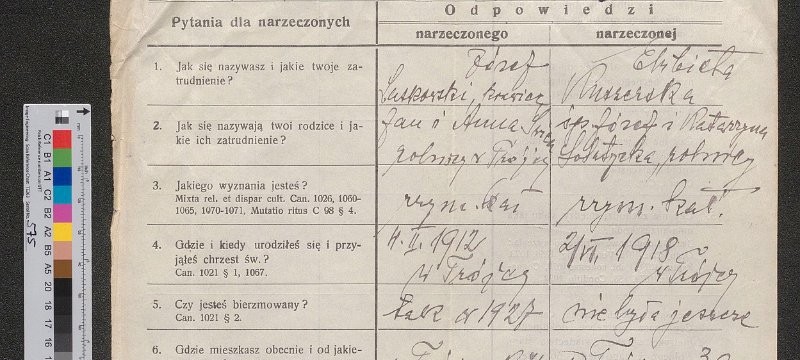 Odpowiedzi
Pytania dla narzeczonych
narzeczonego
narzeczonej
1. Jak się nazywasz i jakie twoje za-
trudnienie?
Józef
krawiec
Elżbieta
2. Jak się nazywają twoi rodzice i ja-
kie ich zatrudnienie?
Jan i Anna
rolnicy w Trójcy
śp. Józef i Katarzyna
rolnicy
3. Jakiego wyznania jesteś?
Mixta rel. et dispar cult. Can. 1026, 1060-
1065, 1070-1071, Mutatio ritus C 98 § 4.
rzym. kat
rzym. kat.
4. Gdzie i kiedy urodziłeś się i przy-
jąłeś chrzest św.?
Can. 1021 § 1, 1067.
4. II. 1912
w Trójcy
2/VII. 1918
w Trójcy
5. Czy jesteś bierzmowany?
Can. 1021 § 2.
tak w 1927
nie była jeszcze
6. Gdzie mieszkasz obecnie i od jakie-
575
B1
C1
A1
C2
B2
A2
B5
A5
20
18
17
16